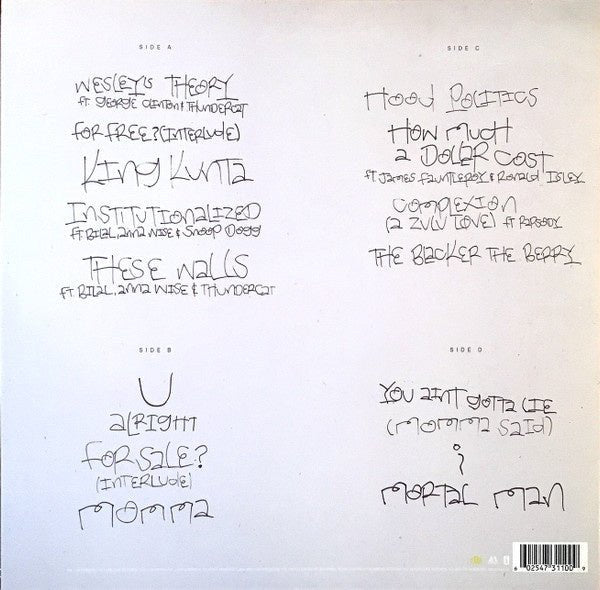 SIDE A
WESLEY'S THEORY
ft. GEORGE CLINTON & THUNDERCAT
FOR FREE? (INTERLUDE)
KING KUNTA
INSTITUTIONALIZED
ft BILAL, ANNA WISE & SNOOP DOGG
THESE WALLS
ft BILAL, ANNA WISE & THUNDERCAT
SIDE B
U
ALRIGHT
FOR SALE?
(INTERLUDE)
MOMMA
SIDE C
HOOD POLITICS
HOW MUCH
A DOLLAR COST
ft JAMES FAUNTLEROY & RONALD ISLEY
COMPLEXION
(A ZULU LOVE) ft RAPSODY
THE BLACKER THE BERRY
SIDE D
YOU AINT GOTTA LIE
(MOMMA SAID)
i
MORTAL MAN
6 02547 31100 9